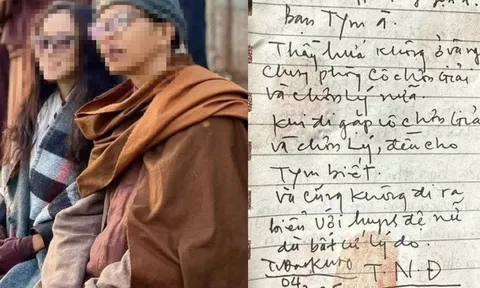 Bạn Tym à.
Thầy hứa không ở
chung phòng cô chơn Giải
và chơn Lý nữa
Khi đi gặp cô chơn Giải
và chơn Lý, đều cho
Tym biết.
và cũng không đi ra
biển với huynh đệ nữ
dù bất cứ lý do.
T.N.Đ
04